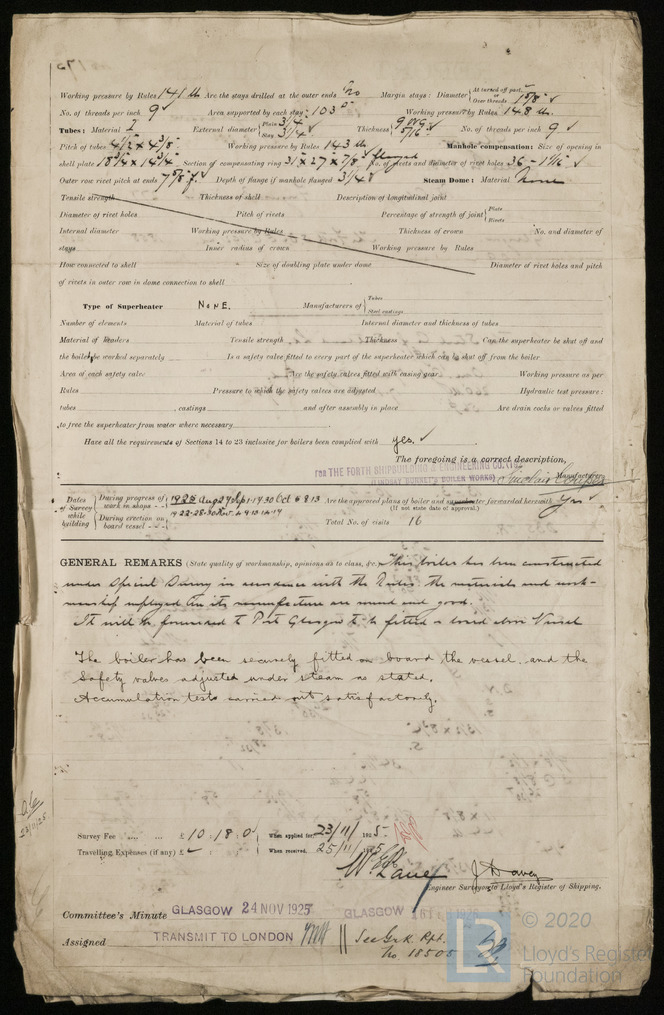 Working pressure by Rules 141 lb Are the stays drilled at the outer ends No Margin stays: Diameter { At turned off part, or Over threads 1 5/8" ✓
No. of threads per inch 9 ✓ Area supported by each stay 103 □" Working pressure by Rules 148 lb.
Tubes: Material I External diameter { Plain 3 1/4" Stay 3 1/4" ✓ Thickness { 9 WG 5/16" ✓ No. of threads per inch 9 ✓
Pitch of tubes 4 1/2 x 4 3/8 Working pressure by Rules 143 lb Manhole compensation: Size of opening in
shell plate 18 3/4 x 14 3/4 Section of compensating ring No. of rivets and diameter of rivet holes 36 - 1 1/16" ✓
Outer row rivet pitch at ends 7 5/8" Depth of flange if manhole flanged 3 1/4" Steam Dome: Material None
Tensile strength Thickness of shell Description of longitudinal joint
Diameter of rivet holes Pitch of rivets Percentage of strength of joint { Plate Rivets
Internal diameter Working pressure by Rules Thickness of crown No. and diameter of
stays Inner radius of crown Working pressure by Rules
How connected to shell Size of doubling plate under dome Diameter of rivet holes and pitch
of rivets in outer row in dome connection to shell
Type of Superheater NONE. Manufacturers of { Tubes Steel castings
Number of elements Material of tubes Internal diameter and thickness of tubes
Material of headers Tensile strength Thickness Can the superheater be shut off and
the boiler be worked separately Is a safety valve fitted to every part of the superheater which can be shut off from the boiler
Area of each safety valve Are the safety valves fitted with easing gear Working pressure as per
Rules Pressure to which the safety valves are adjusted Hydraulic test pressure:
tubes , castings and after assembly in place Are drain cocks or valves fitted
to free the superheater from water where necessary
Have all the requirements of Sections 14 to 23 inclusive for boilers been complied with yes. ✓
The foregoing is a correct description,
FOR THE FORTH SHIPBUILDING & ENGINEERING CO. (1921) LTD
(LINDSAY BURNET'S BOILER WORKS) Manufacturer.
Dates of Survey while building { During progress of work in shops - - 1925 Aug 27 Sep 1. 14. 30 Oct 6. 8. 13 Are the approved plans of boiler and superheater forwarded herewith Yes ✓
(If not state date of approval.)
During erection on board vessel - - - 19. 22. 28. 30 Nov. 4. 9. 13. 14. 17 Total No. of visits 16
GENERAL REMARKS (State quality of workmanship, opinions as to class, &c. This boiler has been constructed
under Special Survey in accordance with the Rules, the materials and work-
manship employed in its manufacture are sound and good.
It will be forwarded to Port Glasgow to be fitted on board above Vessel
The boiler has been securely fitted on board the vessel and the
Safety valves adjusted under steam as stated.
Accumulation tests carried out satisfactorily.
Survey Fee ... ... £ 10 : 18 : 0 When applied for, 23/11/1925.
Travelling Expenses (if any) £ : : When received, 25/11/1925
W. E. Lane J Davey
Engineer Surveyor to Lloyd's Register of Shipping.
Committee's Minute GLASGOW 24 NOV 1925 GLASGOW
Assigned TRANSMIT TO LONDON See Grk. Rpt.
No 18505
© 2020
LR Lloyd's Register
Foundation